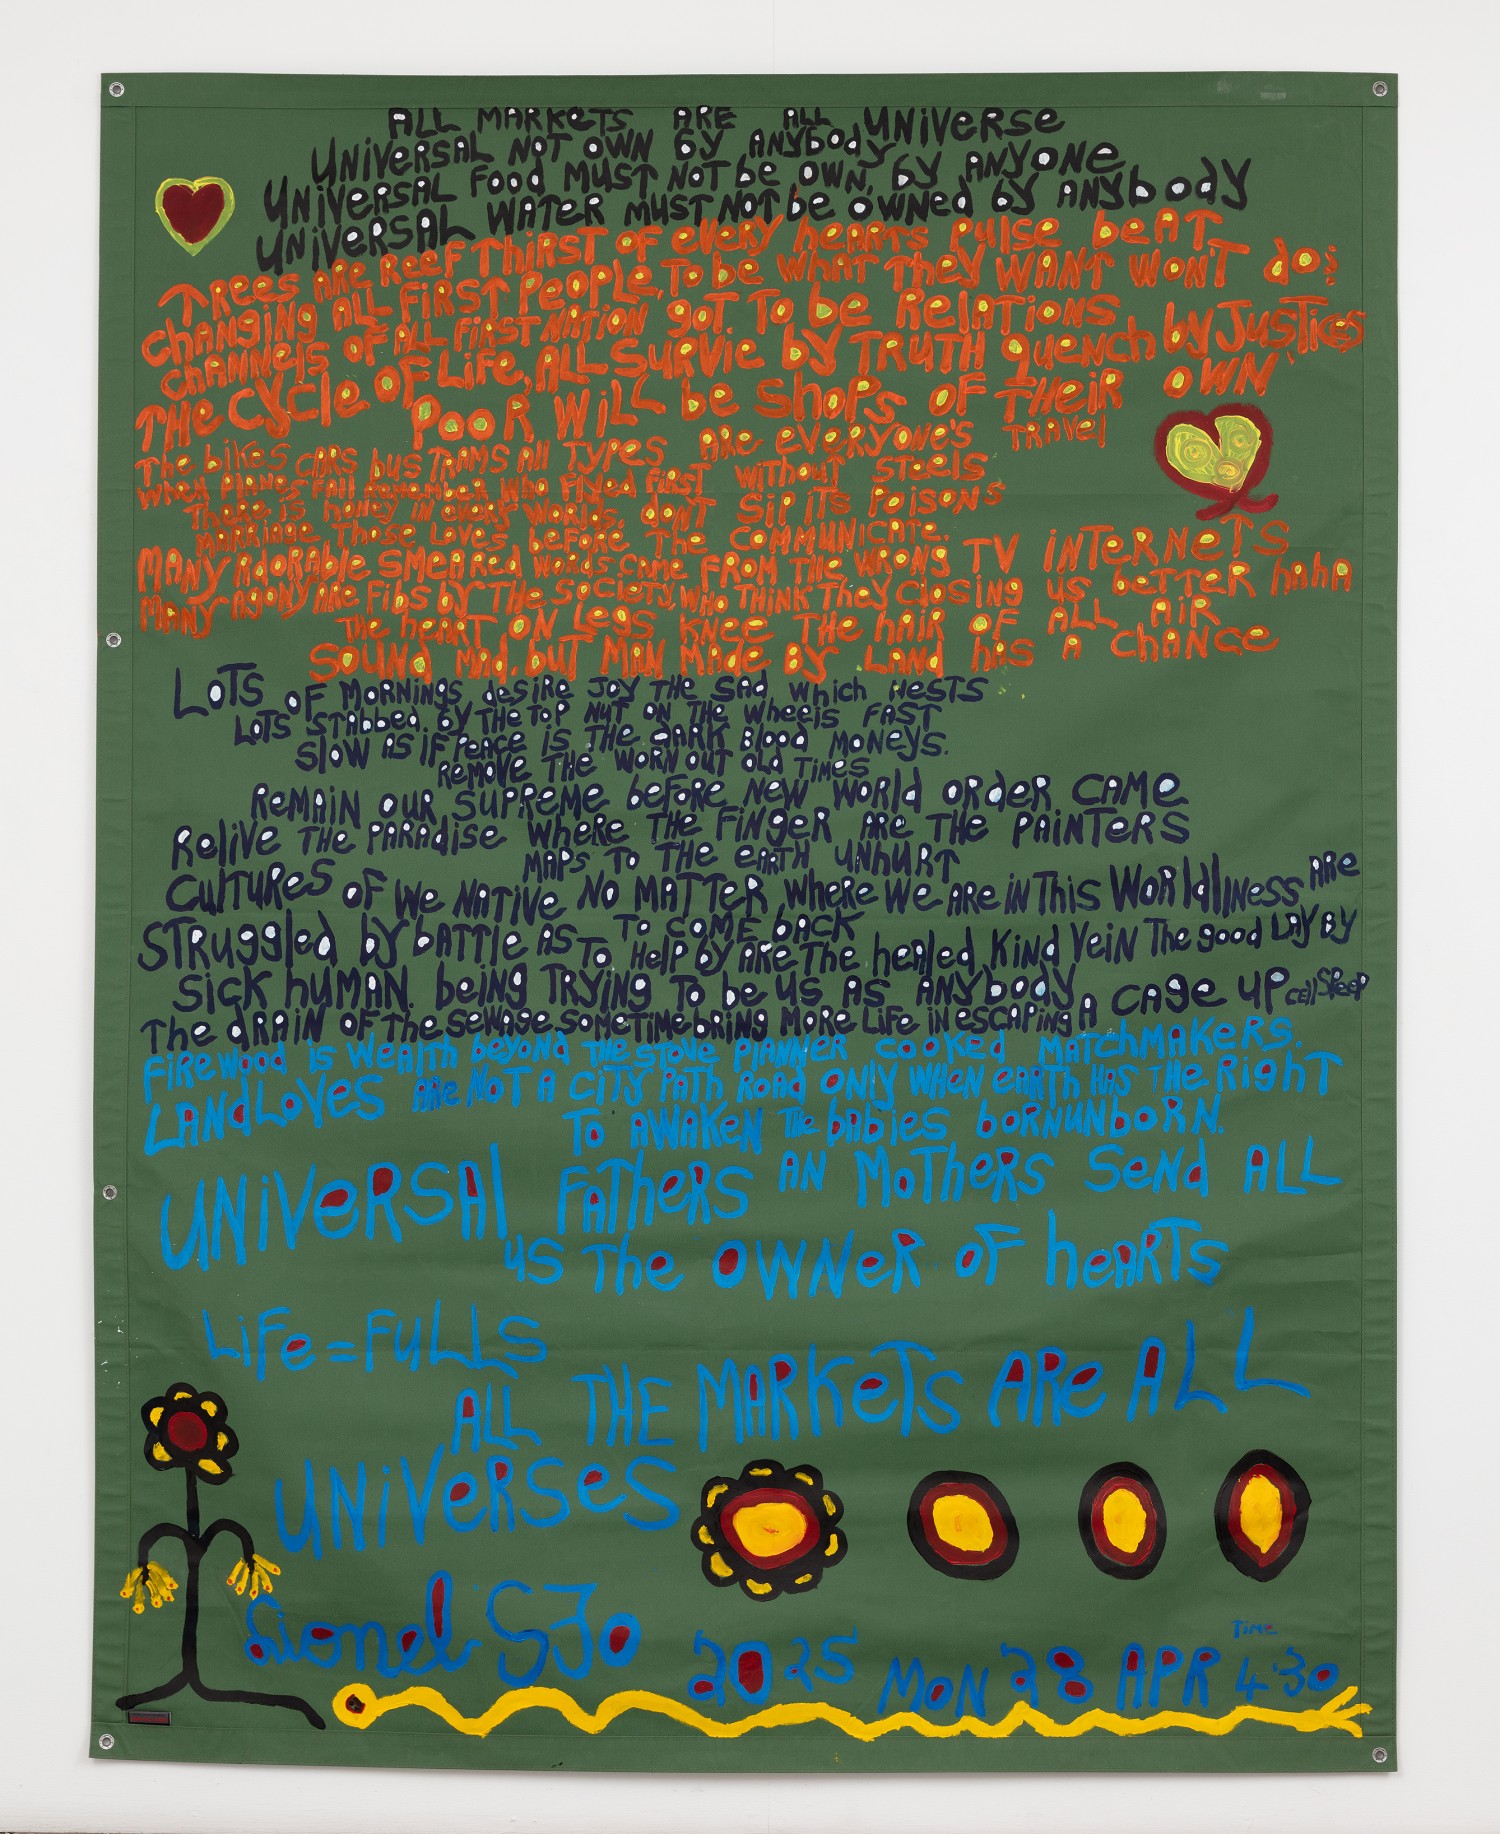 ALL MARKETS ARE ALL UNIVERSE
UNIVERSAL NOT OWN BY ANYBODY
UNIVERSAL FOOD MUST NOT be OWN, by ANYONE
UNIVERSAL WATER MUST NOT be OWNed by ANYbody
TREES ARE REEF THIRST OF eVERY heARTS pulse beAT
CHANGING ALL FIRST PeOPLE, To be WHAT They WANT WON'T do
CHANNELS OF ALL FIRST NATION goT. To be RELATIONS
THe CYcle OF LiFe, ALL SURVIE by TRUTH quENCh by JUSTICES
POOR WiLL be ShoPS OF THEiR OWN
The bIKES CARS bUS TRAMS All TYPES ARe eVERYONE'S TRAVel
When PlANeS FAll ReMeMBER Who FlYed FIRST WiThouT STEELS
There iS hONeY IN eveRY WORldS. dON'T SIP ITS POISONS
MARRIAge Those LOVES beFORe The COMMUNICATE.
MANY AdORAble SMeARed WORdS CAMe FROM THe WRONG TV INTeRNeTS
MANY AgONY ARe FIbS bY THe SOCIeTY, WhO THINK TheY ClOSINg US beTTER hAhA
THe heART ON LegS KNEE THe hAIR OF ALL AIR
SOUNd MAd, buT MAN MAde by LANd hAS A ChANCe
LOTS OF MORNINgS deSiRe JOY The SAd which NeSTS
LOTS STAbbed bY THe TOP NUT ON The WheelS FAST
SlOW AS IF PeACe iS THe dARK BlOOd MONeYS.
ReMOVe THe WORN OUT Old TIMES
ReMAIN OUR SUPREMe beFORe NeW WORld ORdeR CAMe
ReliVe THe PARAdise WheRe THe FINgeR ARe THe PAINTeRS
MAPS TO THe eARTH UNhURT
CulTuReS OF We NATiVe NO MATTeR WheRe We ARe iN ThiS WORldliNeSS ARe
TO COMe bACK
STRuggled by bATTle AS TO Help by ARe The heAled KiNd VeiN The good LAY by
SiCK huMAN. beiNg TRYiNg To be uS AS ANYbodY, A CAge UP Cell SleeP
The dRAiN OF The SewAge SOMeTiMe bRiNg MORe LiFe iN eSCAPiNg
FiReWOOd iS WeAlTh beYONd The STOVe PlANNeR COOKed MATChMAKeRS.
LANd LOVeS ARe NOT A CiTY PATh ROAd ONlY WheN eARTh HAS The RighT
To AWAKeN The bAbieS bORN UNbORN.
UNiVeRSAl FATheRS AN MoTheRS SeNd ALL
uS The OWNeR OF heARTS
LiFe=FuLLS
ALL THE MARKeTS ARe ALL
UNiVeRSeS
Lionel SJo 2025 MON 28 APR TiMe 4:30